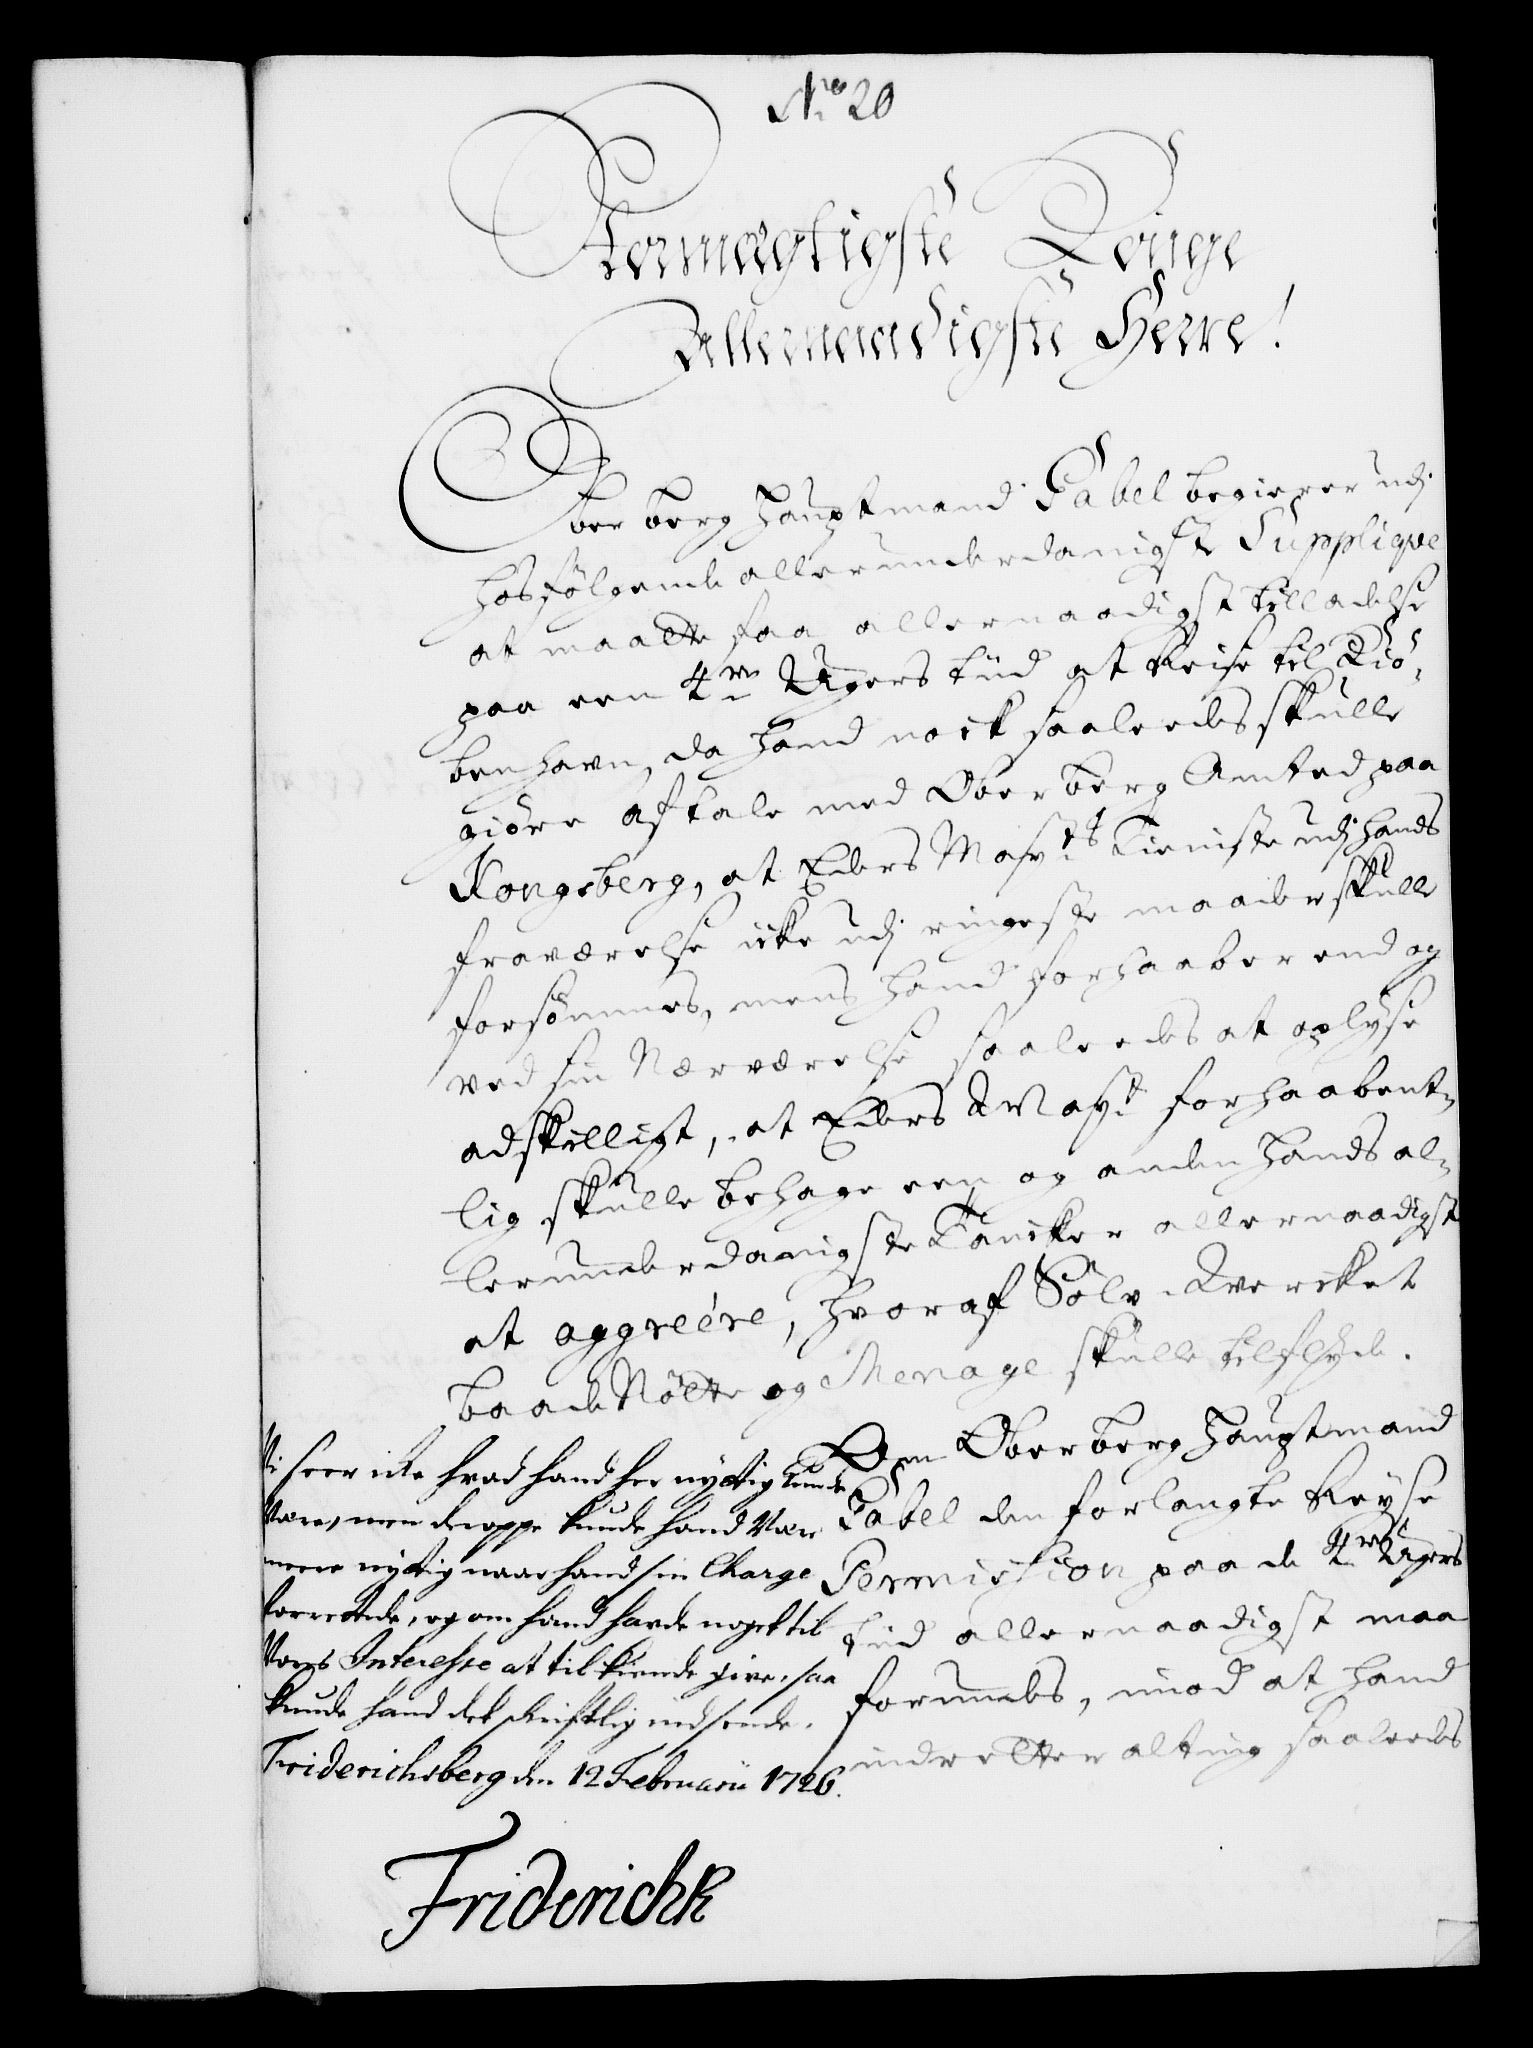 No 20
Stormægtigste Konge
Allernaadigste Herre!
Ober berg Hauptmand Gabel begierer udj
hosfølgende allerunderdanigste Supplique
at maatte faa allernaadigst tilladelse
paa een 4re Ugers tiid at Reise til Kiø-
benhavn, da hand nock saaledes skulle
giøre aftale med Ober berg Amted paa
Kongsberg, at Eders Maysts Tieniste udj hands
fraværelse icke udj ringeste maader skulle
forsømmes, mens hand forhaaber end og
ved sin Nærværelse saaledes at oplyse
adskilligt, at Eders Mayst forhaabent-
lig skulle behage een og anden hands al-
lerunderdanigste Tancker allernaadigst
at aggreére, hvoraf Sølv-Wercket
baade Nøtte og Menage skulle tilflyde.
Om Ober berg Hauptmand
Gabel den forlangte Reyse
Permission paa de 4re Ugers
tiid allernaadigst maa
forundes, imod at hand
indretter alting saaledes
Vi seer icke hvad hand her nyttig kunde
være, men deroppe kunde hand være
meere nyttig naar hand sin Charge
forrettede, og om hand hafde noget til
Vores Interesse at tilkiende give, saa
kunde hand det skriftlig indsende.
Friderichsberg den 12 Februarii 1726.
Friderich R